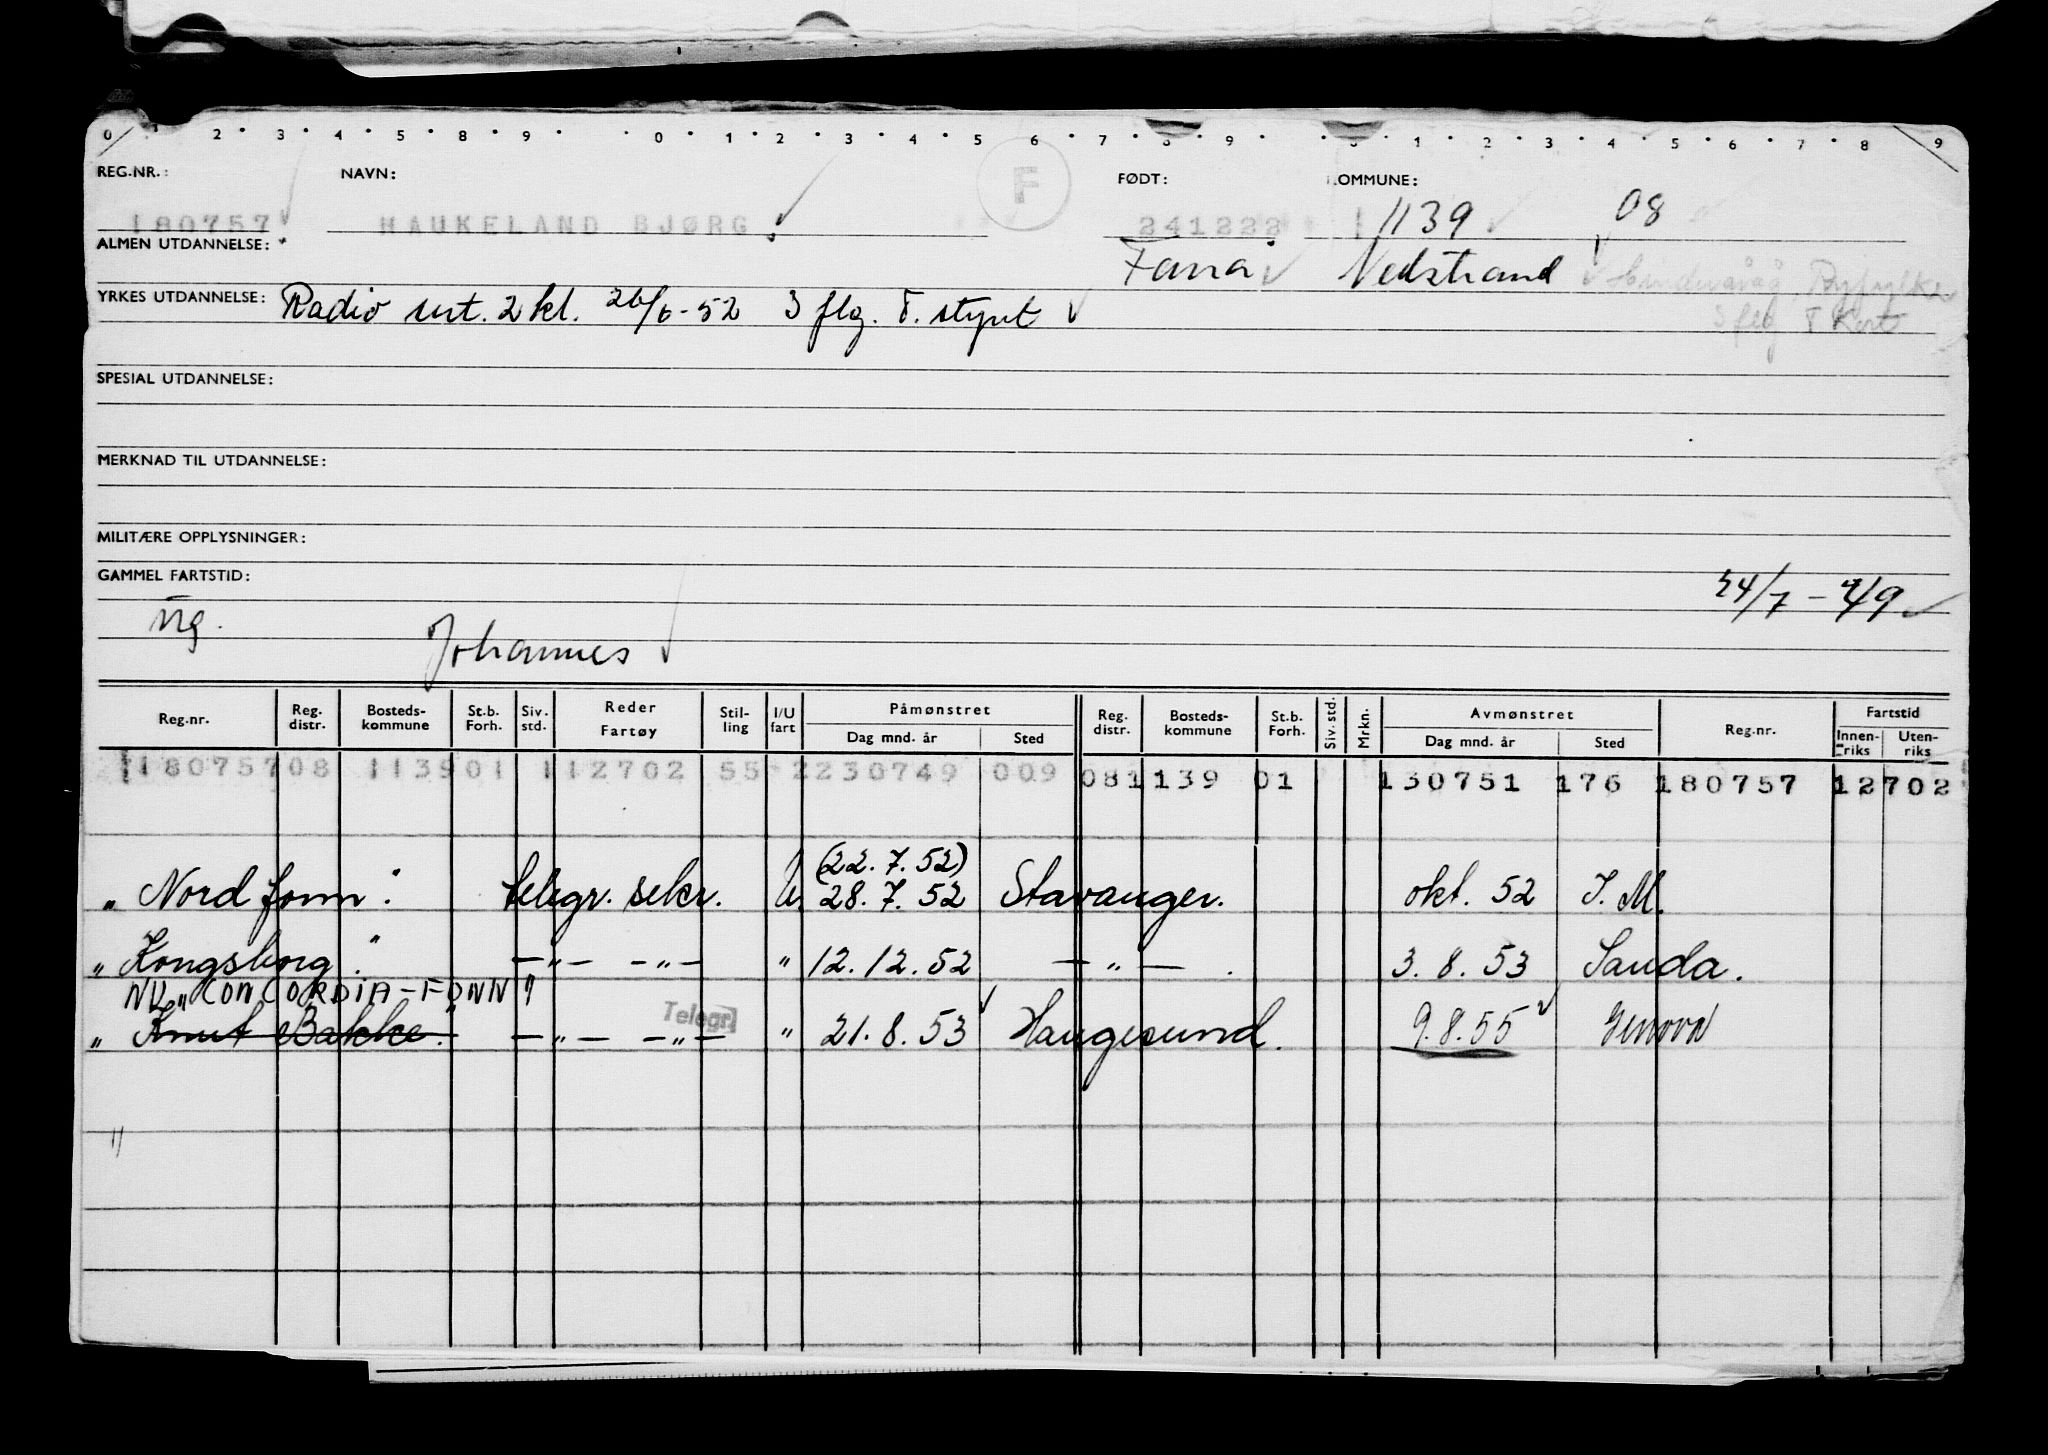 0 1 2 3 4 5 8 9 0 1 2 3 4 5 6 7 8 9 1 2 3 4 5 6 7 8 9
REG.NR.: NAVN: F FØDT: KOMMUNE:
180757 HAUKELAND BJØRG 241222 1139 08
ALMEN UTDANNELSE: Fana Nedstrand
YRKES UTDANNELSE: Radio sert. 2 kl. 26/6-52 3 flg. T. styrt
3 T Kort
SPESIAL UTDANNELSE:
MERKNAD TIL UTDANNELSE:
MILITÆRE OPPLYSNINGER:
GAMMEL FARTSTID: 24/7 - 4/9
ug.
Johannes
Reg.nr. Reg. distr. Bosteds-kommune St.b. Forh. Siv. std. Reder Fartøy Stil-ling I/U fart Påmønstret Dag mnd. år Sted Reg. distr. Bosteds-kommune St.b. Forh. Siv. std. Mrkn. Avmønstret Dag mnd. år Sted Reg.nr. Fartstid Innen-riks Uten-riks
180757 08 1139 01 1 12702 55 2 230749 009 08 1139 01 130751 176 180757 12702
(22.7.52)
" Nordfonn". telegr. sekr. U. 28.7.52 Stavanger. okt. 52 I. M.
" Kongsborg". —"— —"— " 12.12.52 —"—. 3.8.53 Sauda.
NU "CONCORDIA-FONN"
" Knut Bakke." —"— —"— Telegr. " 21.8.53 Haugesund. 9.8.55 Genova
"